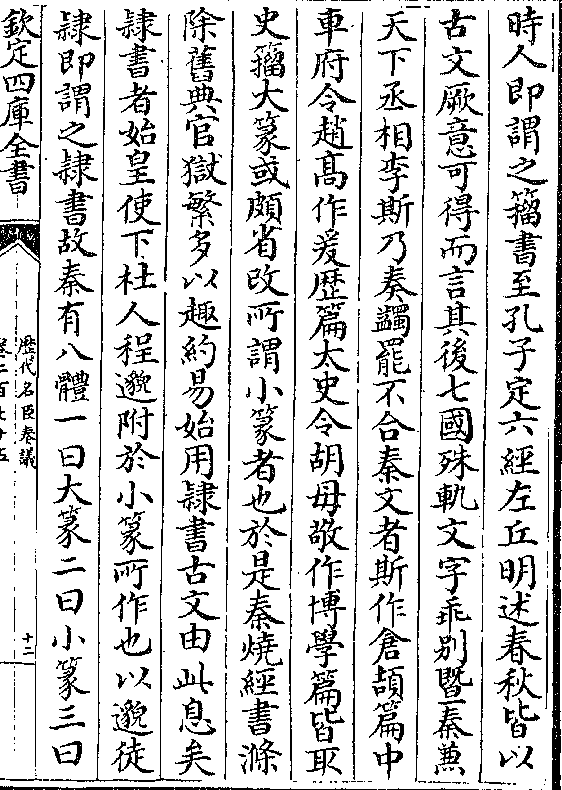 時人即謂之籀書至孔子定六經左丘明述春秋皆以
古文厥意可得而言其後七國殊軌文字乖别暨秦兼
天下丞相李斯乃奏蠲罷不合秦文者斯作倉頡篇中
車府令趙高作爰歴篇太史令胡毋敬作博學篇皆取
史籀大篆或頗省改所謂小篆者也於是秦燒經書滌
除舊典官獄繁多以趣約易始用隸書古文由此息矣
隸書者始皇使下杜人程邈附於小篆所作也以邈徒
隸即謂之隸書故秦有八體一曰大篆二曰小篆三曰
欽定四庫全書
歴代名臣奏議
十二